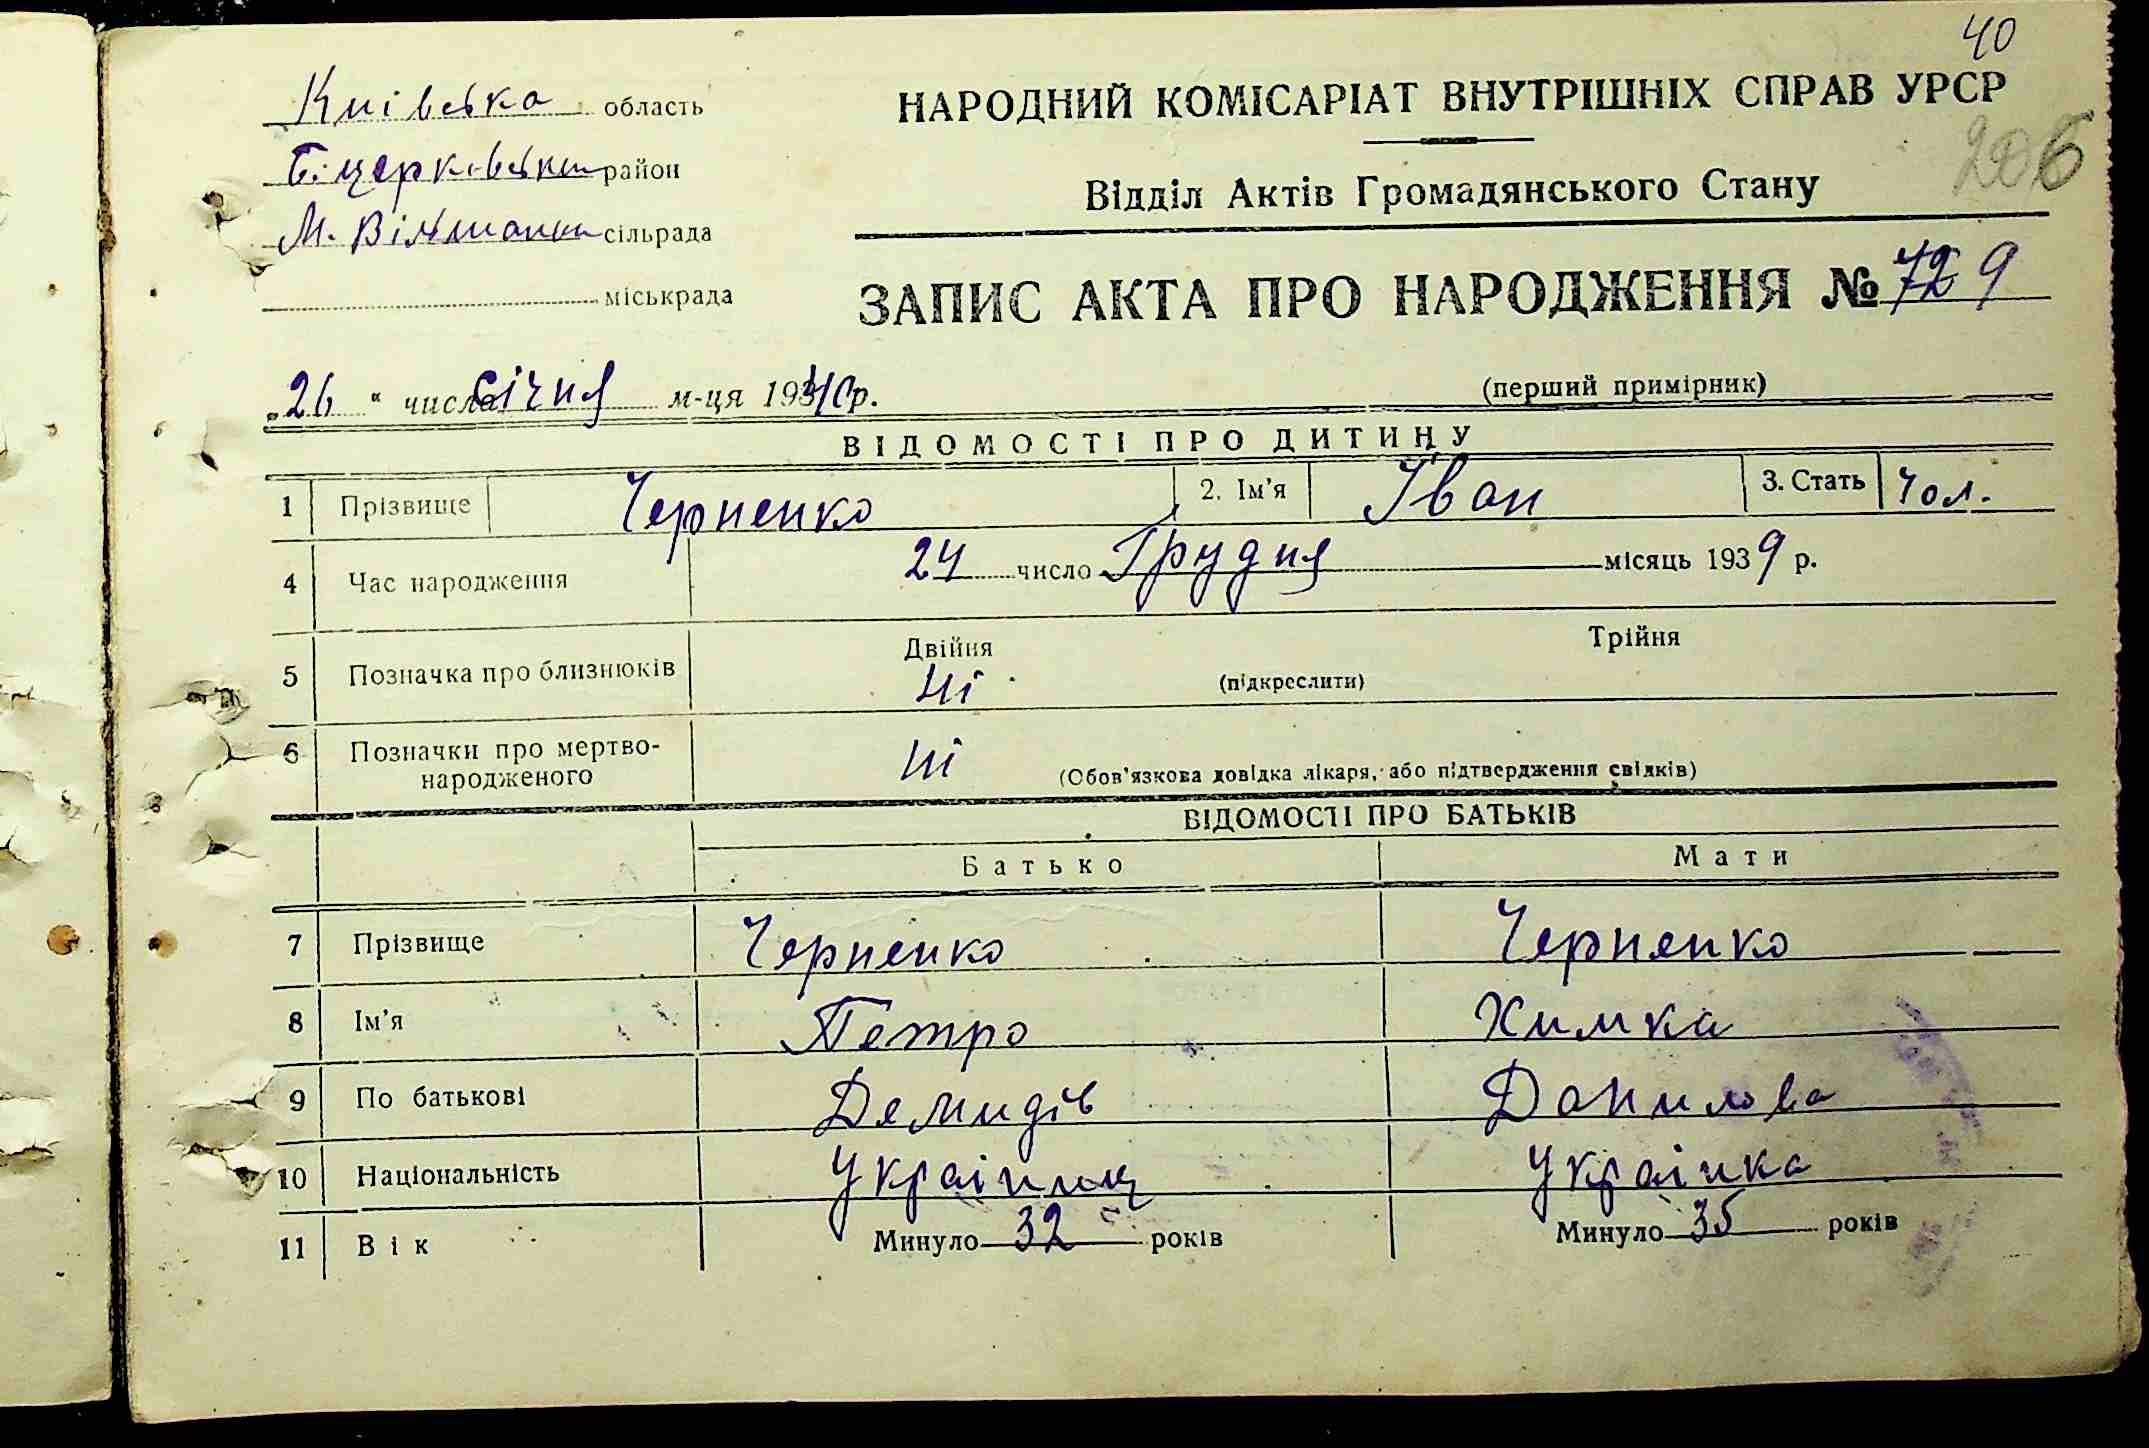 40
Київська область
НАРОДНИЙ КОМІСАРІАТ ВНУТРІШНІХ СПРАВ УРСР
206
Біцерківський район
Відділ Актів Громадянського Стану
М. Вільшанка сільрада
міськрада
ЗАПИС АКТА ПРО НАРОДЖЕННЯ № 729
„26 “ числа січня м-ця 1940р.
(перший примірник)
ВІДОМОСТІ ПРО ДИТИНУ
1 Прізвище Черненко 2. Ім'я Іван 3. Стать чол.
4 Час народження 24 число Грудня місяць 1939 р.
5 Позначка про близнюків Двійня Трійня
ні (підкреслити)
6 Позначки про мертво-
народженого ні (Обов'язкова довідка лікаря, або підтвердження свідків)
ВІДОМОСТІ ПРО БАТЬКІВ
Батько Мати
7 Прізвище Черненко Черненко
8 Ім'я Петро Химка
9 По батькові Демидів Данилова
10 Національність Українец Українка
11 Вік Минуло 32 років Минуло 35 років